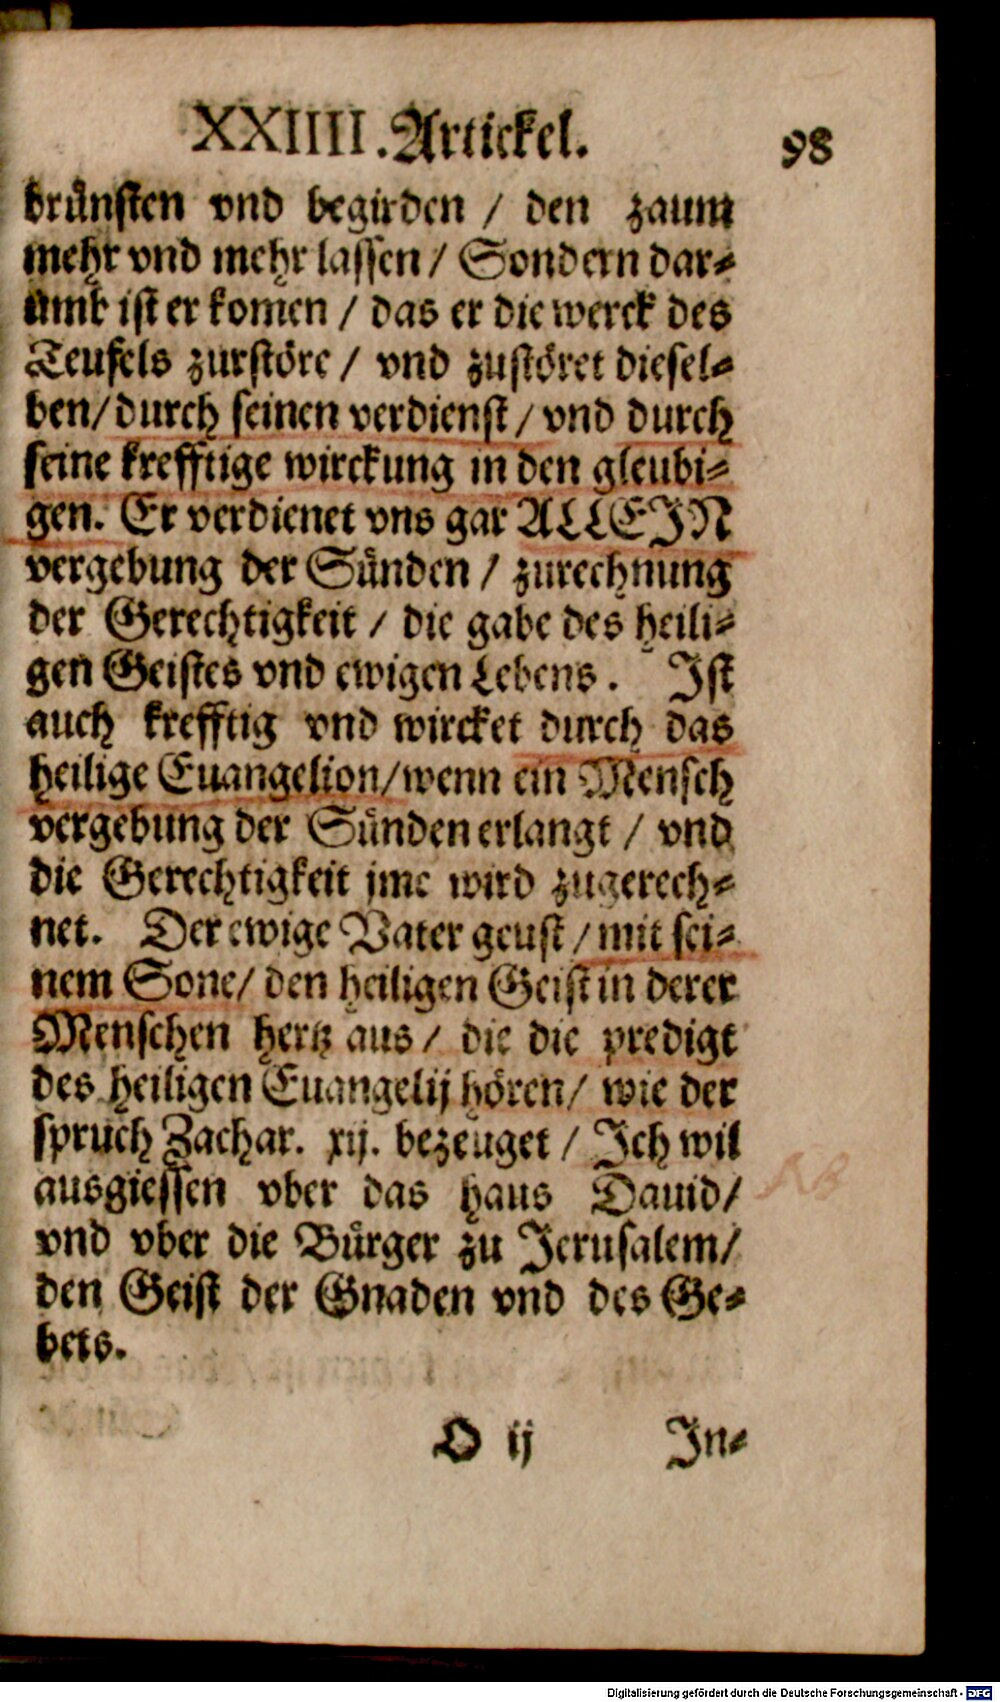 XXIIII. Artickel. 98
brünsten vnd begirden / den zaum
mehr vnd mehr lassen / Sondern dar⸗
umb ist er komen / das er die werck des
Teufels zurstöre / vnd zustöret diesel⸗
ben / durch seinen verdienst / vnd durch
seine krefftige wirckung in den gleubi⸗
gen. Er verdienet vns gar ALLEJN
vergebung der Sünden / zurechnung
der Gerechtigkeit / die gabe des heili⸗
gen Geistes vnd ewigen Lebens. Jst
auch krefftig vnd wircket durch das
heilige Euangelion / wenn ein Mensch
vergebung der Sünden erlangt / vnd
die Gerechtigkeit jme wird zugerech⸗
net. Der ewige Vater geust / mit sei⸗
nem Sone / den heiligen Geist in derer
Menschen hertz aus / die die predigt
des heiligen Euangelij hören / wie der
spruch Zachar. xij. bezeuget / Jch wil
ausgiessen vber das haus Dauid /
vnd vber die Bürger zu Jerusalem /
den Geist der Gnaden vnd des Ge⸗
bets.
O ij Jn⸗
Digitalisierung gefördert durch die Deutsche Forschungsgemeinschaft - DFG